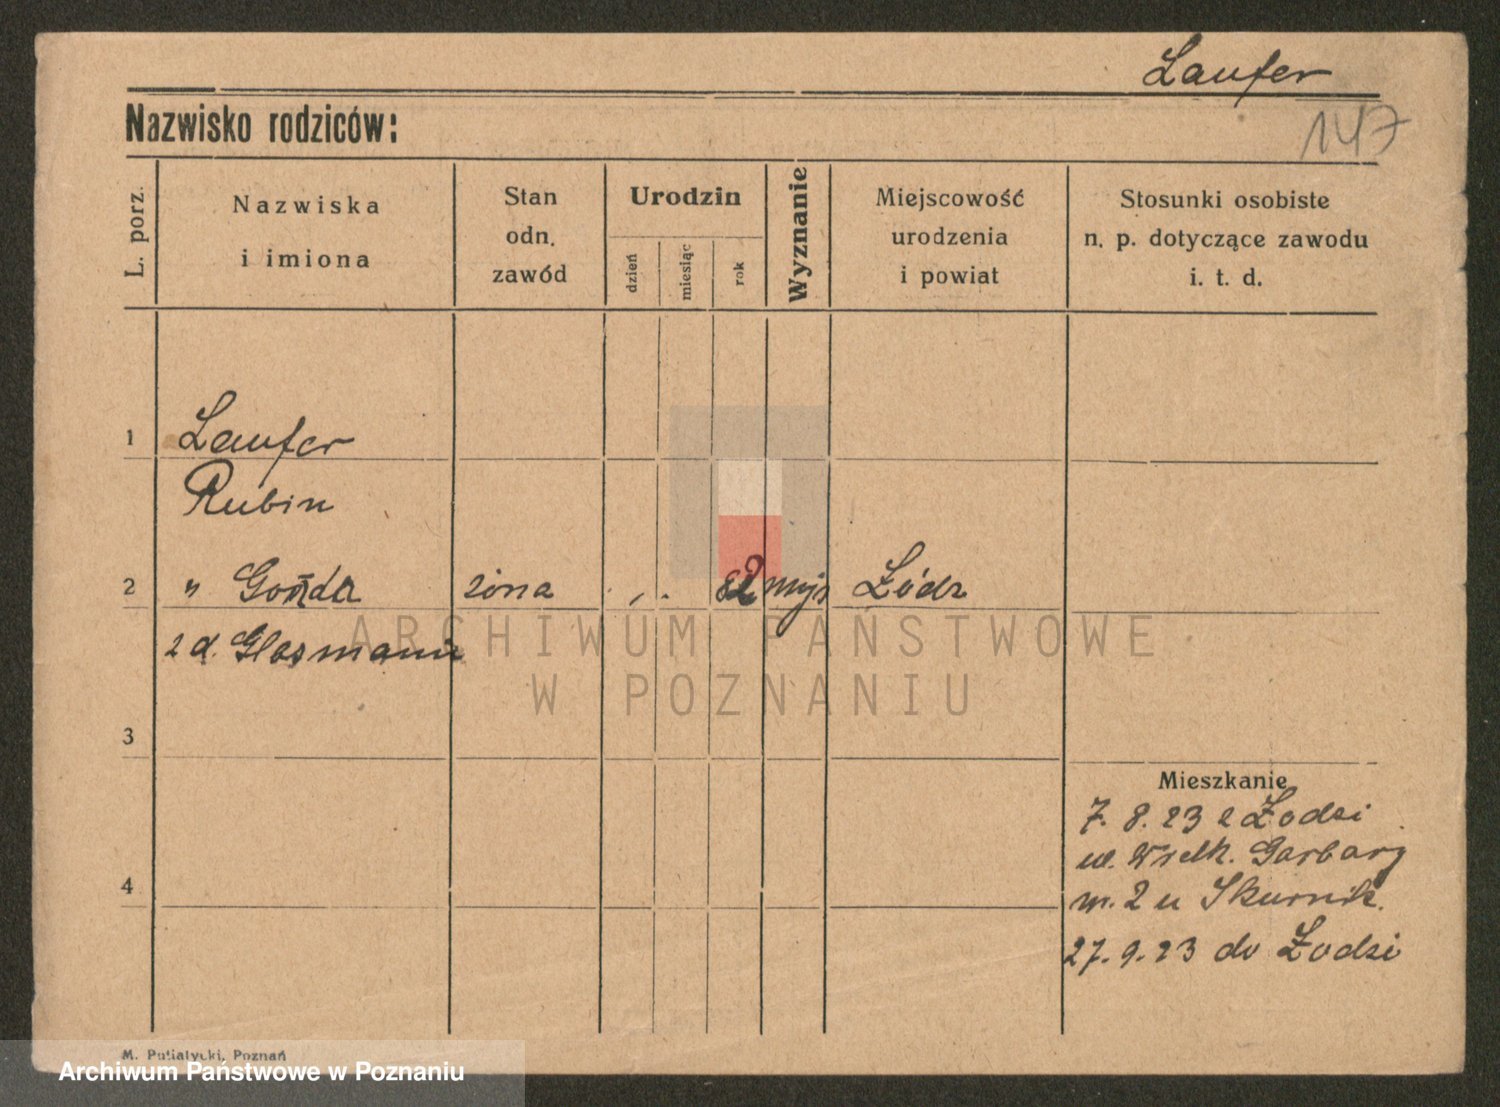 Laufer
147
Nazwisko rodziców:
L. porz.
Nazwiska
i imiona
Stan
odn.
zawód
Urodzin
dzień
miesiąc
rok
Wyznanie
Miejscowość
urodzenia
i powiat
Stosunki osobiste
n. p. dotyczące zawodu
i. t. d.
1 Laufer
Rubin
2 " żona 82 mojż Łódz
z d. Glasmann
3
Mieszkanie
7. 8. 23 z Łodzi
ul. Wielk. Garbary
4
m. 2 u Skurnik.
27. 9. 23 do Łodzi
ARCHIWUM PAŃSTWOWE
W POZNANIU
M. Putiatycki, Poznań
Archiwum Państwowe w Poznaniu